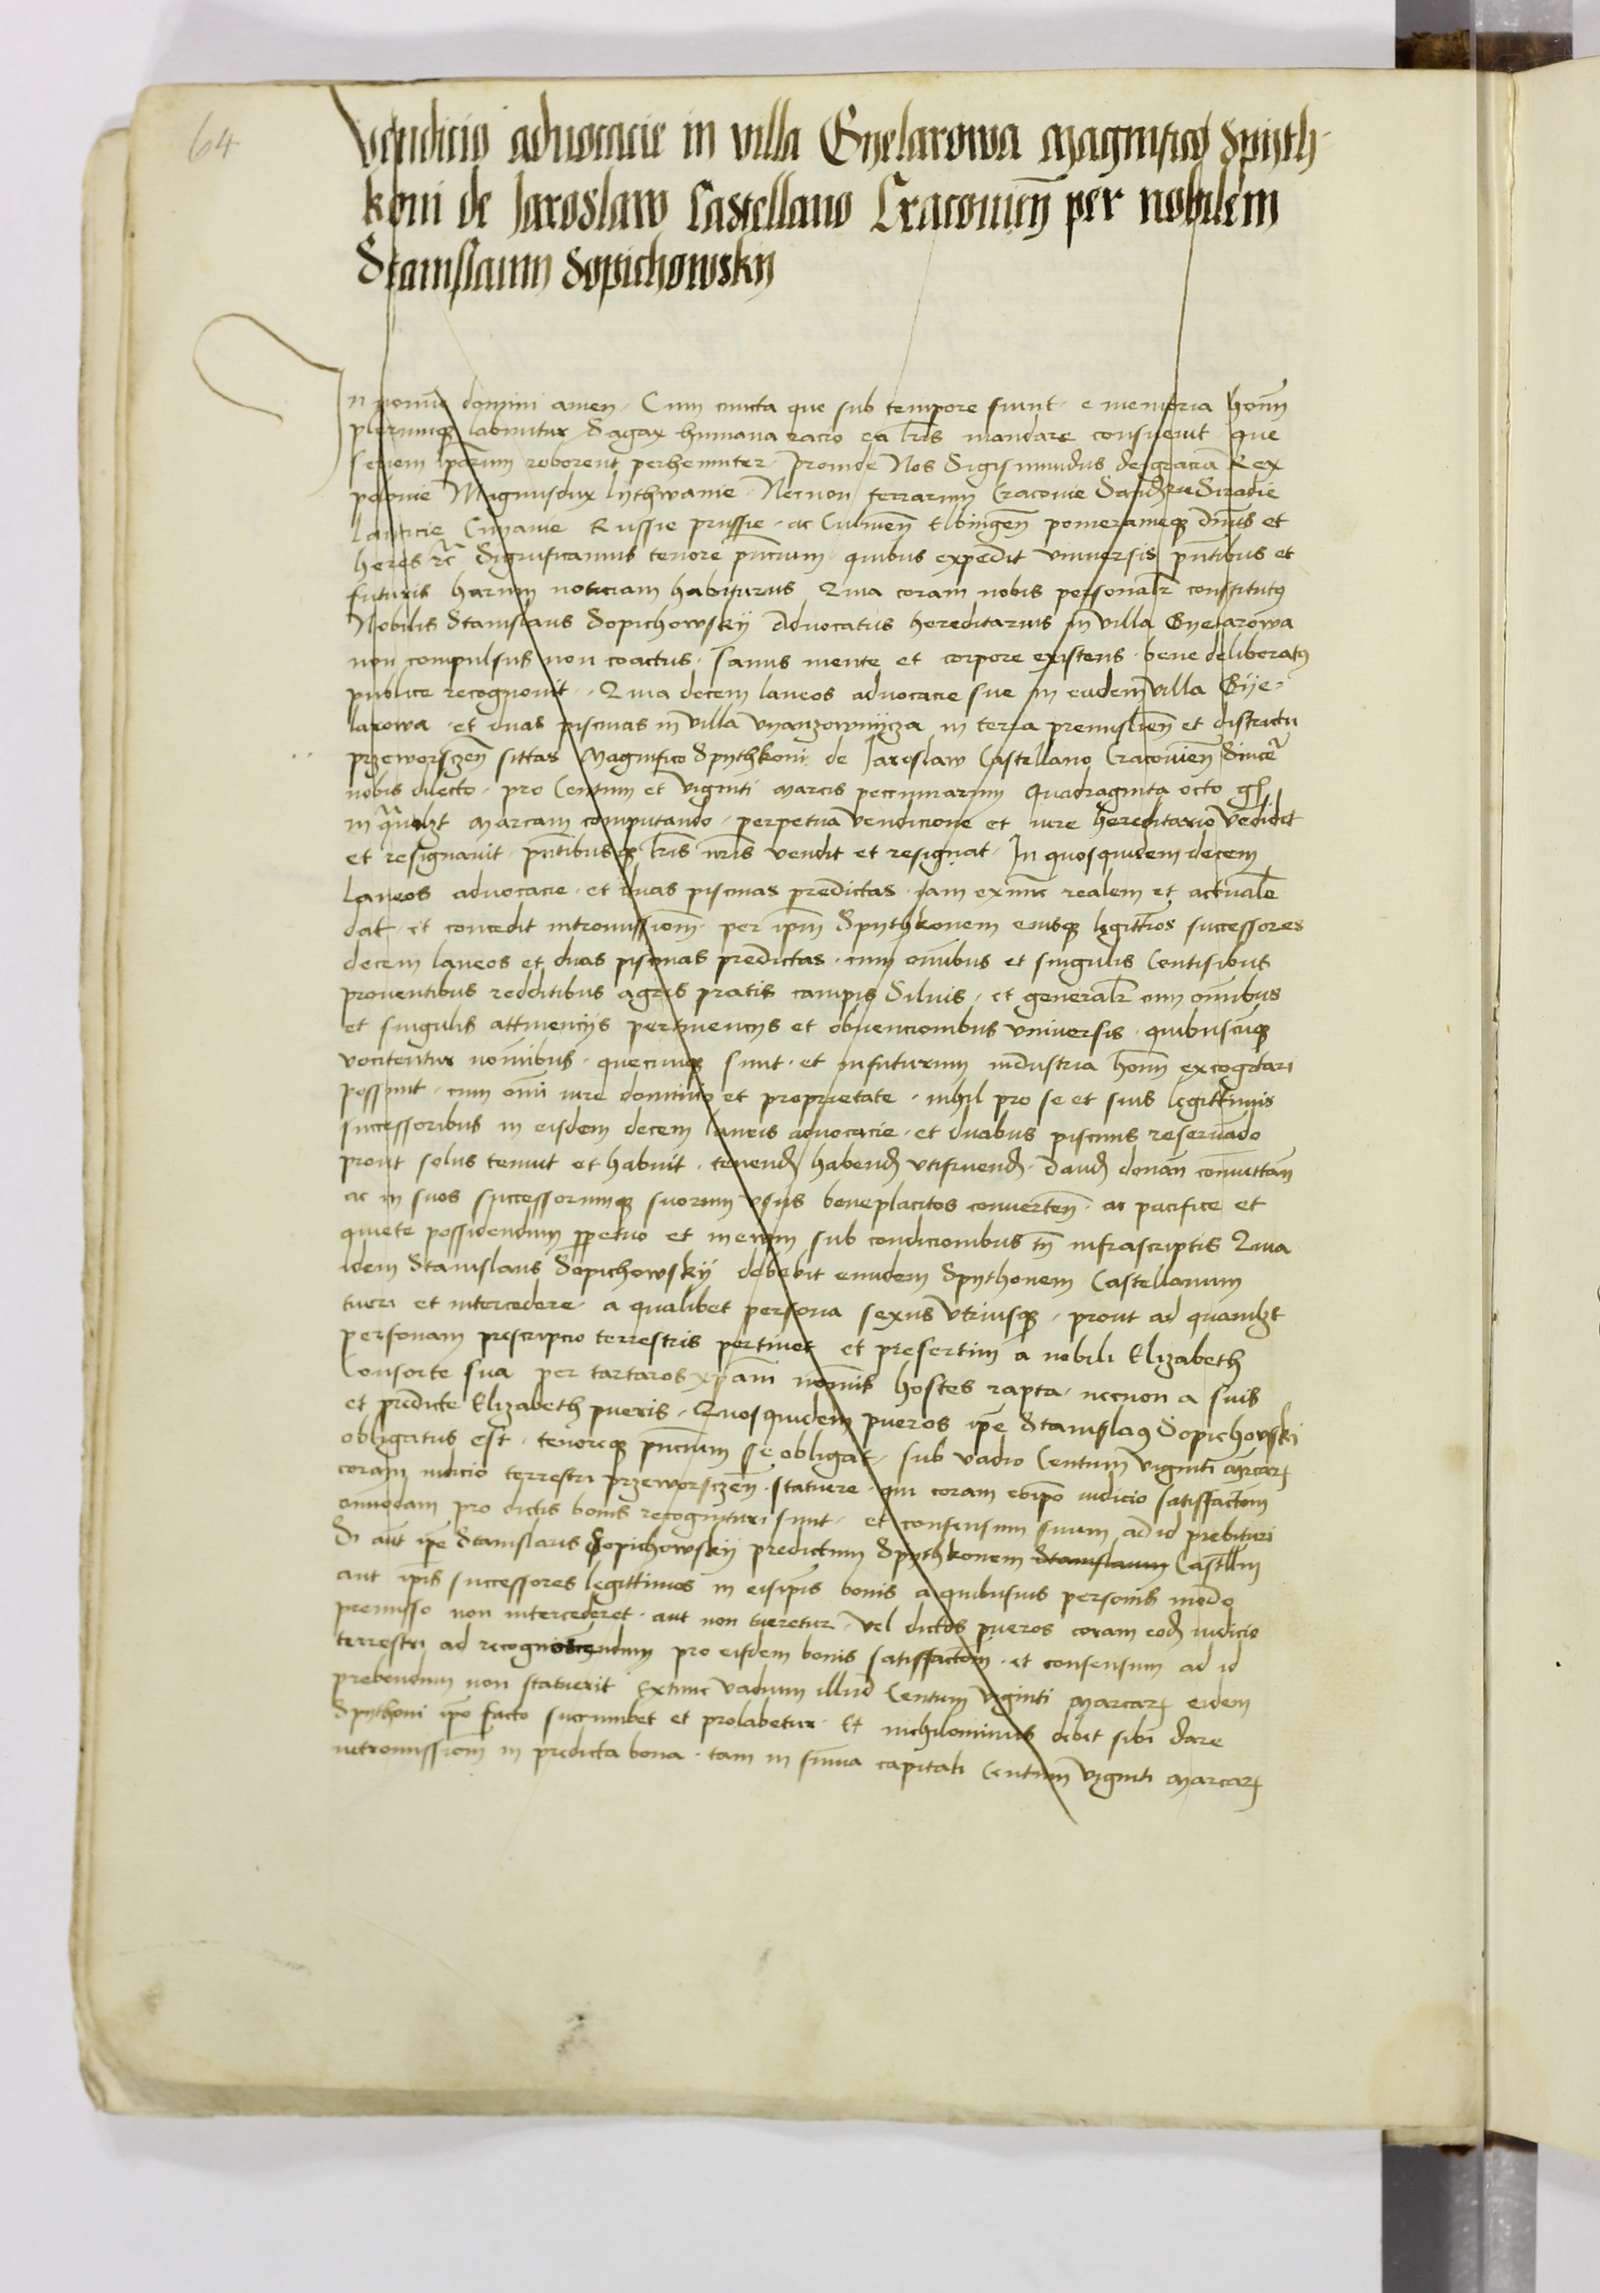 64
Vendicio advocacie in villa Gyelarowa Magnifico Spyth-
koni de Jaroslaw Castellano Cracovien̄ per nobilem
Stanislaum Sopichowsky
In nomīe domini amen. Cum cuncta que sub tempore fiunt. e memoria hom̄
plerumq labuntur Sagax humana racio ea lr̄is mandare consuevit que
seriem ip̄arum roborent perhenniter. proinde Nos Sigismundus dei gracia Rex
polonie Magnusdux lythwanie. Necnon terrarum Cracovie Sand̄rie Siradie
lancicie Cuyavie Russie prussie. ac Culmen̄ Elbingen̄ pomeranieq dn̄us et
heres rc̄ Significamus tenore pn̄cium. quibus expedit universis pn̄tibus et
futuris harum noticiam habituris Quia coram nobis personalr̄ constitutus
Nobilis Stanislaus Sopichowsky Advocatus hereditarius in villa Gyelarowa
non compulsus non coactus. sanus mente et corpore existens. bene deliberatus
publice recognovit. Quia decem laneos advocacie sue in eadem villa Gye-
larowa. et duas piscinas in villa in terra premislien̄ et districtu
przeworsczen̄ sittas Magnifico Spythkoni de Jaroslaw Castellano Cracovien̄ Sincer̄
nobis dilecto. pro Centum et viginti marcis peccuniarum Quadraginta octo gr̄
in qūalꝫt marcam computando. perpetua vendicione et iure hereditario vēdidit
et resignavit. pn̄tibusq lr̄is nr̄is vendit et resignat. In quosquidem decem
laneos advocacie. et duas piscinas predictas. iam exnunc realem et actualē
dat. et concedit intromissionē. per ip̄m Spythkonem eiusq legitt̄ios successores
decem laneos et duas piscinas predictas. cum om̄ibus et singulis Centisibus
proventibus redditibus agris pratis campis Silvis. et generalr̄ cum om̄ibus
et singulis attinencys pertinencys et obvencionibus universis. quibuscūq
vocitentur nom̄ibus. quecunq sunt. et infuturum industria hom̄ excogitari
possunt. cum om̄i iure dominio et proprietate. nihil pro se et suis legittimis
successoribus in eisdem decem laneis advocacie. et duabus piscinis reservādo
prout solus tenuit et habuit. tenend̄ habend̄ utifruend̄. dand̄ donan̄ comuttan̄
ac in suos successorumq suorum usus beneplacitos converten̄. ac pacifice et
quiete possidendum p̄petuo et in evum sub condicionibus tn̄ infrascriptis Quia
idem Stanislaus Sopichowsky debebit eundem Spythonem Castellanum
tueri et intercedere. a qualibet persona sexus utriusq. prout ad quamlꝫt
personam prescripcio terrestris pertinet et presertim a nobili Elizabeth
Consorte sua per tartaros xp̄iani nom̄is hostes rapta. necnon a suis
et predicte Elizabeth pueris. Quosquidem pueros ip̄e Stanislaus Sopichowski
obligatus est. tenoreq pn̄cium se obligat. sub vadio Centum viginti marcarꝝ
coram iudicio terrestri przeworsczen̄. statuere. qui coram eōip̄o iudicio satisfactōem
om̄modam pro dictis bonis recognituri sunt. et consensum suum ad id prebituri
Si aūt ip̄e Stanislaus Sopichowsky predictum Spythkonem Stanislaum Castllm̄
aut ip̄is successores legittimos in eisip̄is bonis a quibusvis personis modo
premisso non intercederet. aut non tueretur. vel dictos pueros coram eod̄ iudicio
terrestri ad recognoscendum pro eisdem bonis satisfactōem. et consensum ad id
prebendum non statuerit Extunc vadium illud Centum viginti marcarꝝ eidem
Spythoni ip̄o facto succumbet et prolabetur. Et nichilominus debet sibi dare
intromissionē in predicta bona. tam in sum̄a capitali Centum viginti marcarꝝ